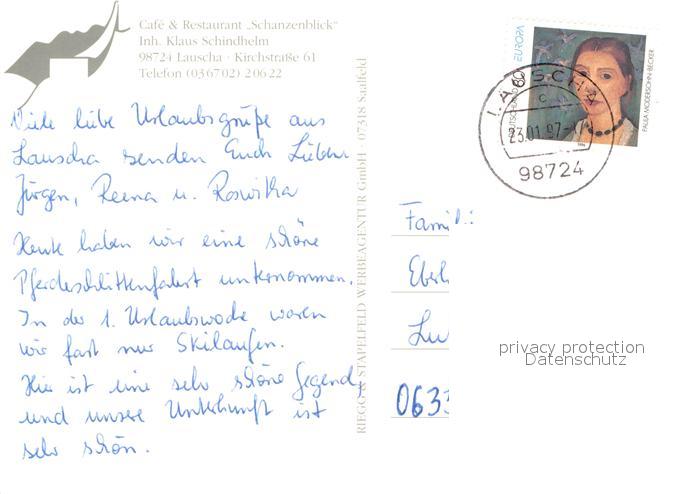 Café & Restaurant „Schanzenblick“
Inh. Klaus Schindhelm
98724 Lauscha · Kirchstraße 61
Telefon (03 67 02) 2 06 22
Viele liebe Urlaubsgrüße aus
Lauscha senden Euch Lieben
Jürgen, Reena u. Roswitha
Heute haben wir eine schöne
Pferdeschlittenfahrt unternommen.
In der 1. Urlaubswoche waren
wir fast nur Skilaufen.
Hier ist eine sehr schöne Gegend,
und unsere Unterkunft ist
sehr schön.
RIEGG & STAPELFELD WERBEAGENTUR GmbH · 07318 Saalfeld
EUROPA
DEUTSCHLAND 80
PAULA MODERSOHN-BECKER
LAUSCHA
c
23.01.97-17
98724
Famil
Eberh
Lu
0633
privacy protection
Datenschutz